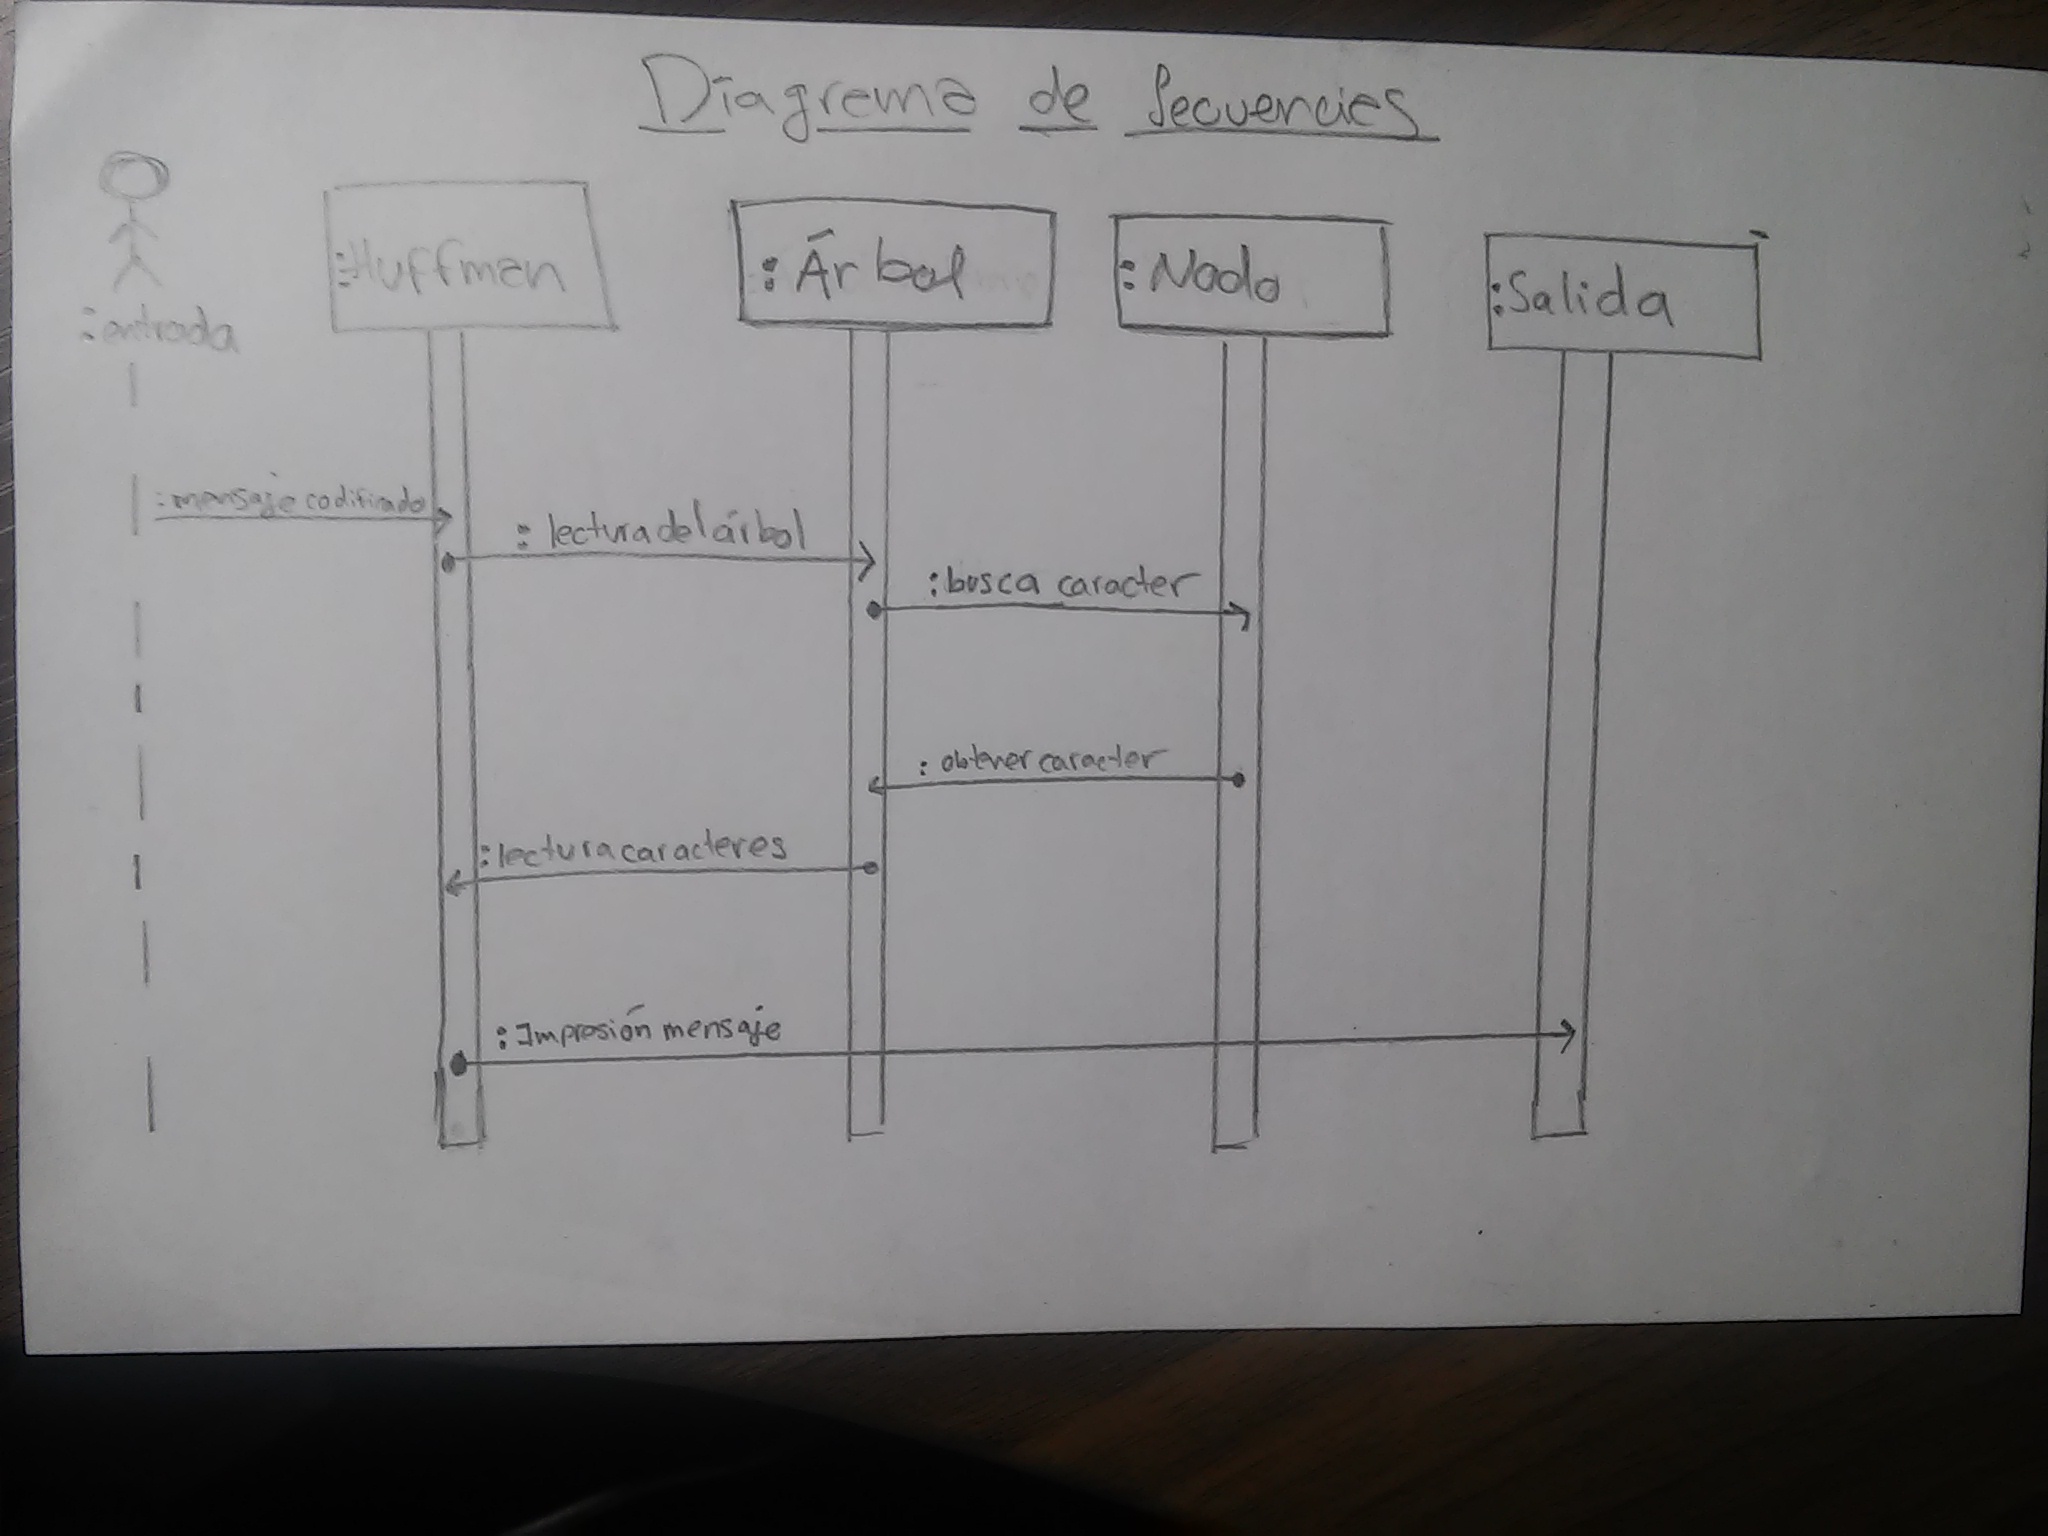 Diagrama de Secuencias
:Huffman
:Árbol
:Nodo
:Salida
:entrada
:mensaje codificado
: lectura del árbol
:busca caracter
: obtener caracter
:lectura caracteres
:Impresión mensaje